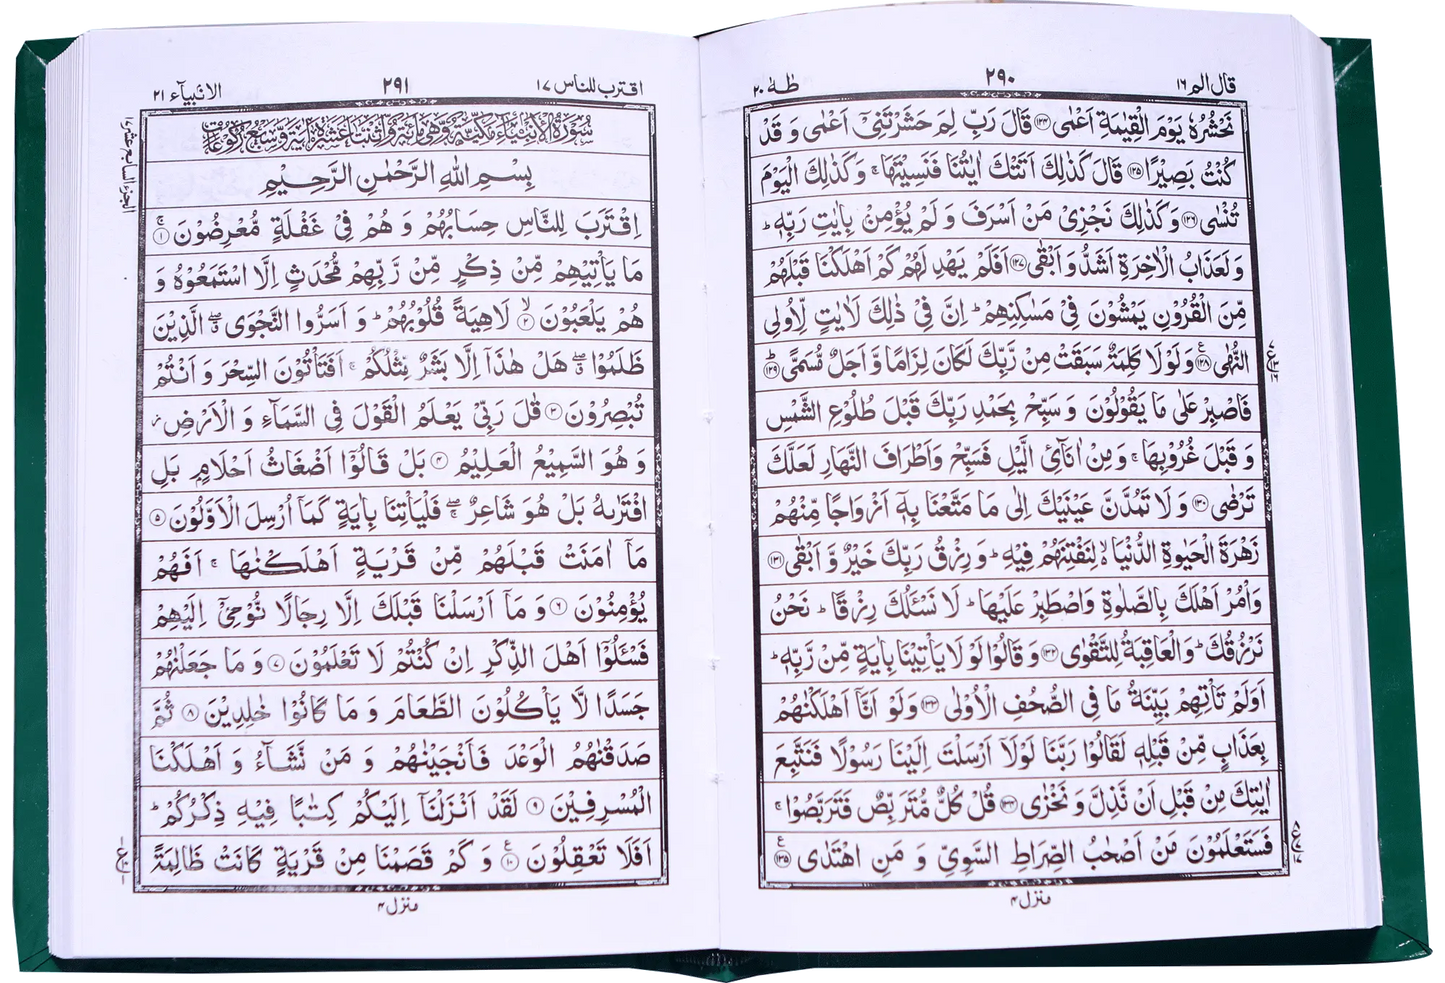 قال الم ١٦
٢٩٠
طٰهٰ ٢٠
نَحْشُرُهٗ يَوْمَ الْقِيٰمَةِ اَعْمٰى ۝١٢٤ قَالَ رَبِّ لِمَ حَشَرْتَنِيْۤ اَعْمٰى وَ قَدْ
كُنْتُ بَصِيْرًا ۝١٢٥ قَالَ كَذٰلِكَ اَتَتْكَ اٰيٰتُنَا فَنَسِيْتَهَا ۚ وَ كَذٰلِكَ الْيَوْمَ
تُنْسٰى ۝١٢٦ وَ كَذٰلِكَ نَجْزِيْ مَنْ اَسْرَفَ وَ لَمْ يُؤْمِنْ بِاٰيٰتِ رَبِّهٖ ؕ
وَ لَعَذَابُ الْاٰخِرَةِ اَشَدُّ وَ اَبْقٰى ۝١٢٧ اَفَلَمْ يَهْدِ لَهُمْ كَمْ اَهْلَكْنَا قَبْلَهُمْ
مِّنَ الْقُرُوْنِ يَمْشُوْنَ فِيْ مَسٰكِنِهِمْ ؕ اِنَّ فِيْ ذٰلِكَ لَاٰيٰتٍ لِّاُولِي
النُّهٰى ۝١٢٨ وَ لَوْ لَا كَلِمَةٌ سَبَقَتْ مِنْ رَّبِّكَ لَكَانَ لِزَامًا وَّ اَجَلٌ مُّسَمًّى ۝١٢٩
فَاصْبِرْ عَلٰى مَا يَقُوْلُوْنَ وَ سَبِّحْ بِحَمْدِ رَبِّكَ قَبْلَ طُلُوْعِ الشَّمْسِ
وَ قَبْلَ غُرُوْبِهَا ۚ وَ مِنْ اٰنَآئِ الَّيْلِ فَسَبِّحْ وَ اَطْرَافَ النَّهَارِ لَعَلَّكَ
تَرْضٰى ۝١٣٠ وَ لَا تَمُدَّنَّ عَيْنَيْكَ اِلٰى مَا مَتَّعْنَا بِهٖۤ اَزْوَاجًا مِّنْهُمْ
زَهْرَةَ الْحَيٰوةِ الدُّنْيَا ۙ لِنَفْتِنَهُمْ فِيْهِ ؕ وَ رِزْقُ رَبِّكَ خَيْرٌ وَّ اَبْقٰى ۝١٣١
وَاْمُرْ اَهْلَكَ بِالصَّلٰوةِ وَ اصْطَبِرْ عَلَيْهَا ؕ لَا نَسْـَٔلُكَ رِزْقًا ؕ نَحْنُ
نَرْزُقُكَ ؕ وَ الْعَاقِبَةُ لِلتَّقْوٰى ۝١٣٢ وَ قَالُوْا لَوْ لَا يَاْتِيْنَا بِاٰيَةٍ مِّنْ رَّبِّهٖ ؕ
اَوَلَمْ تَاْتِهِمْ بَيِّنَةُ مَا فِي الصُّحُفِ الْاُوْلٰى ۝١٣٣ وَ لَوْ اَنَّاۤ اَهْلَكْنٰهُمْ
بِعَذَابٍ مِّنْ قَبْلِهٖ لَقَالُوْا رَبَّنَا لَوْ لَاۤ اَرْسَلْتَ اِلَيْنَا رَسُوْلًا فَنَتَّبِعَ
اٰيٰتِكَ مِنْ قَبْلِ اَنْ نَّذِلَّ وَ نَخْزٰى ۝١٣٤ قُلْ كُلٌّ مُّتَرَبِّصٌ فَتَرَبَّصُوْا ۚ
فَسَتَعْلَمُوْنَ مَنْ اَصْحٰبُ الصِّرَاطِ السَّوِيِّ وَ مَنِ اهْتَدٰى ۝١٣٥
منزل ٤
اقترب للناس ١٧
٢٩١
الانبيآء ٢١
الجزء السابع عشر ١٧
سُوْرَةُ الْاَنْبِيَآءِ مَكِّيَّةٌ وَّهِيَ مِائَةٌ وَّاثْنَتَا عَشْرَةَ اٰيَةً وَّسَبْعُ رُكُوْعَاتٍ
بِسْمِ اللّٰهِ الرَّحْمٰنِ الرَّحِيْمِ
اِقْتَرَبَ لِلنَّاسِ حِسَابُهُمْ وَ هُمْ فِيْ غَفْلَةٍ مُّعْرِضُوْنَ ۝١ۚ
مَا يَاْتِيْهِمْ مِّنْ ذِكْرٍ مِّنْ رَّبِّهِمْ مُّحْدَثٍ اِلَّا اسْتَمَعُوْهُ وَ
هُمْ يَلْعَبُوْنَ ۝٢ۙ لَاهِيَةً قُلُوْبُهُمْ ؕ وَ اَسَرُّوا النَّجْوَى ۖۗ الَّذِيْنَ
ظَلَمُوْا ۖۗ هَلْ هٰذَاۤ اِلَّا بَشَرٌ مِّثْلُكُمْ ۚ اَفَتَاْتُوْنَ السِّحْرَ وَ اَنْتُمْ
تُبْصِرُوْنَ ۝٣ قٰلَ رَبِّيْ يَعْلَمُ الْقَوْلَ فِي السَّمَآءِ وَ الْاَرْضِ ؗ
وَ هُوَ السَّمِيْعُ الْعَلِيْمُ ۝٤ بَلْ قَالُوْۤا اَضْغَاثُ اَحْلَامٍۭ بَلِ
افْتَرٰىهُ بَلْ هُوَ شَاعِرٌ ۖۚ فَلْيَاْتِنَا بِاٰيَةٍ كَمَاۤ اُرْسِلَ الْاَوَّلُوْنَ ۝٥
مَاۤ اٰمَنَتْ قَبْلَهُمْ مِّنْ قَرْيَةٍ اَهْلَكْنٰهَا ۚ اَفَهُمْ
يُؤْمِنُوْنَ ۝٦ وَ مَاۤ اَرْسَلْنَا قَبْلَكَ اِلَّا رِجَالًا نُّوْحِيْۤ اِلَيْهِمْ
فَسْـَٔلُوْۤا اَهْلَ الذِّكْرِ اِنْ كُنْتُمْ لَا تَعْلَمُوْنَ ۝٧ وَ مَا جَعَلْنٰهُمْ
جَسَدًا لَّا يَاْكُلُوْنَ الطَّعَامَ وَ مَا كَانُوْا خٰلِدِيْنَ ۝٨ ثُمَّ
صَدَقْنٰهُمُ الْوَعْدَ فَاَنْجَيْنٰهُمْ وَ مَنْ نَّشَآءُ وَ اَهْلَكْنَا
الْمُسْرِفِيْنَ ۝٩ لَقَدْ اَنْزَلْنَاۤ اِلَيْكُمْ كِتٰبًا فِيْهِ ذِكْرُكُمْ ؕ
اَفَلَا تَعْقِلُوْنَ ۝١٠ وَ كَمْ قَصَمْنَا مِنْ قَرْيَةٍ كَانَتْ ظَالِمَةً
منزل ٤